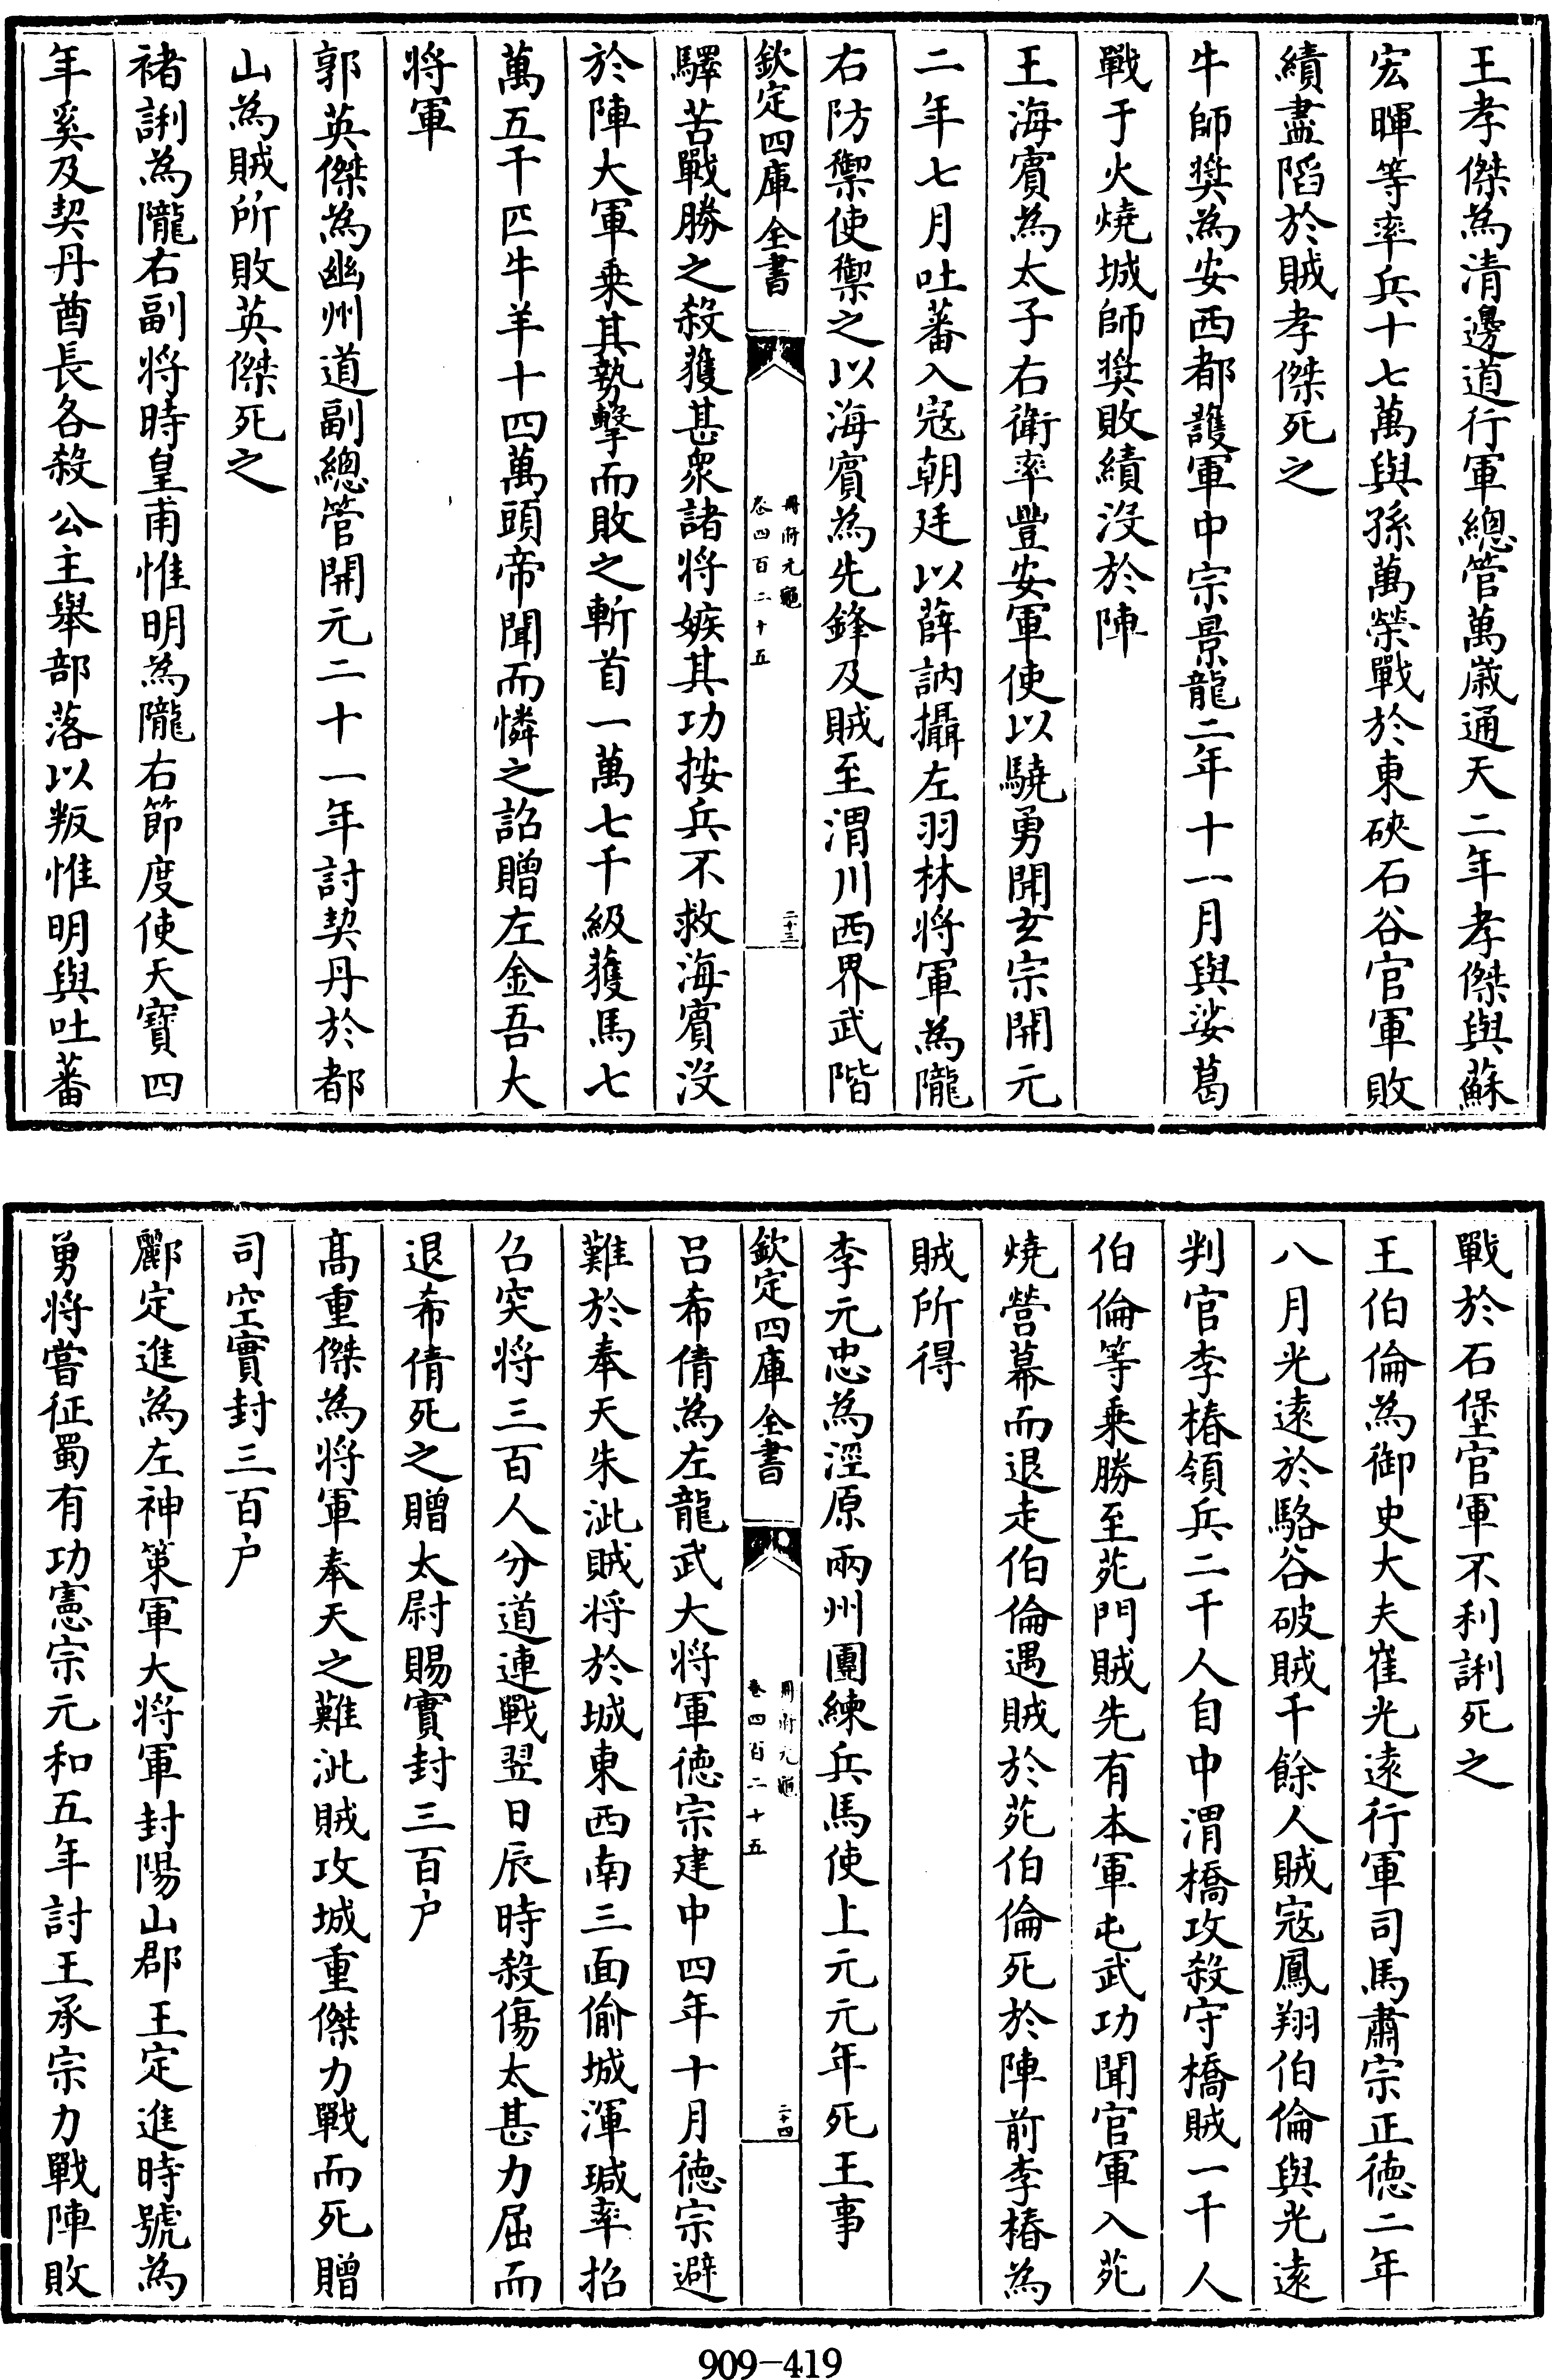 王孝傑為清邊道行軍總管萬歲通天二年孝傑與蘇
宏暉等率兵十七萬與孫萬榮戰於東硤石谷官軍敗
績盡陷於賊孝傑死之
牛師奬為安西都護軍中宗景龍二年十一月與娑葛
戰于火燒城師奬敗績没於陣
王海賓為太子右衛率豐安軍使以驍勇聞玄宗開元
二年七月吐蕃入寇朝廷以薛訥攝左羽林將軍為隴
右防禦使禦之以海賓為先鋒及賊至渭川西界武階
欽定四庫全書
冊府元龜
卷四百二十五
二十三
驛苦戰勝之殺獲甚衆諸將嫉其功按兵不救海賓没
於陣大軍乗其勢擊而敗之斬首一萬七千級獲馬七
萬五千匹牛羊十四萬頭帝聞而憐之詔贈左金吾大
將軍
郭英傑為幽州道副總管開元二十一年討契丹於都
山為賊所敗英傑死之
褚誗為隴右副將時皇甫惟明為隴右節度使天寶四
年奚及契丹酋長各殺公主舉部落以叛惟明與吐蕃
戰於石堡官軍不利誗死之
王伯倫為御史大夫崔光逺行軍司馬肅宗正徳二年
八月光逺於駱谷破賊千餘人賊寇鳳翔伯倫與光逺
判官李椿領兵二千人自中渭橋攻殺守橋賊一千人
伯倫等乗勝至苑門賊先有本軍屯武功聞官軍入苑
燒營幕而退走伯倫遇賊於苑伯倫死於陣前李椿為
賊所得
李元忠為涇原兩州團練兵馬使上元元年死王事
欽定四庫全書
冊府元龜
卷四百二十五
二十四
吕希倩為左龍武大將軍徳宗建中四年十月徳宗避
難於奉天朱泚賊將於城東西南三面偷城渾瑊率招
召突將三百人分道連戰翌日辰時殺傷太甚力屈而
退希倩死之贈太尉賜實封三百户
髙重傑為將軍奉天之難泚賊攻城重傑力戰而死贈
司空實封三百户
酈定進為左神策軍大將軍封陽山郡王定進時號為
勇將嘗征蜀有功憲宗元和五年討王承宗力戰陣敗
909-419